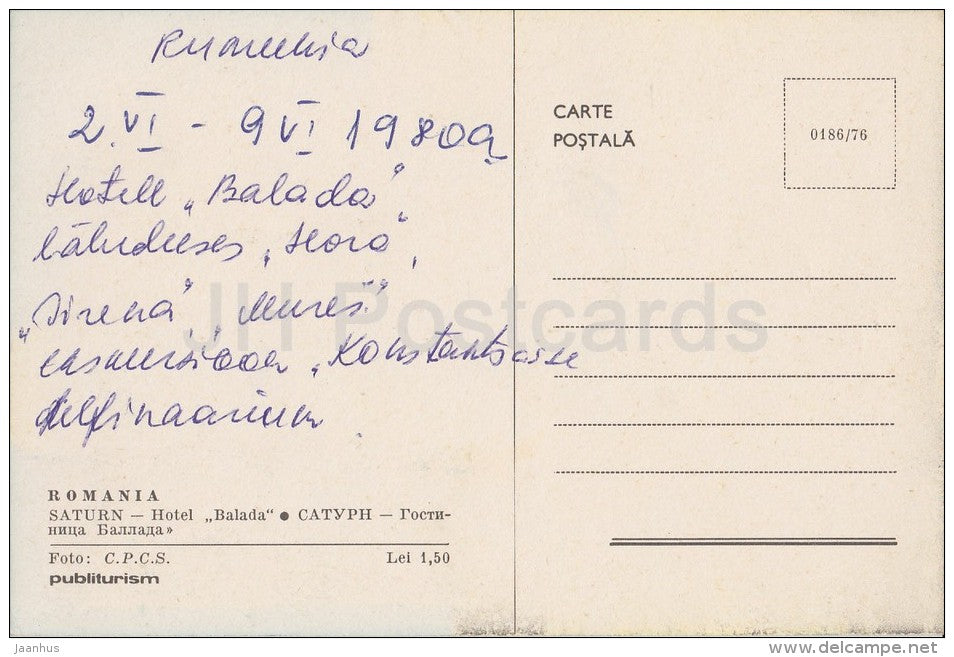 Rumeenia
2.VI – 9 VI 1980a
Hotell „Balada"
läheduses „Hora",
„Sirena", „Mureš"
ekskursioon „Konstantsasse
delfinaarium
ROMANIA
SATURN — Hotel „Balada" ● САТУРН — Гости-
ница Баллада»
Foto: C.P.C.S. Lei 1,50
publiturism
CARTE
POȘTALĂ
0186/76
JH Postcards
jaanhus
delcampe.net